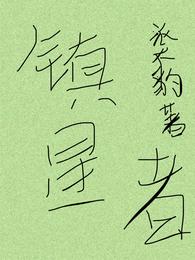 镇星
豹著
者